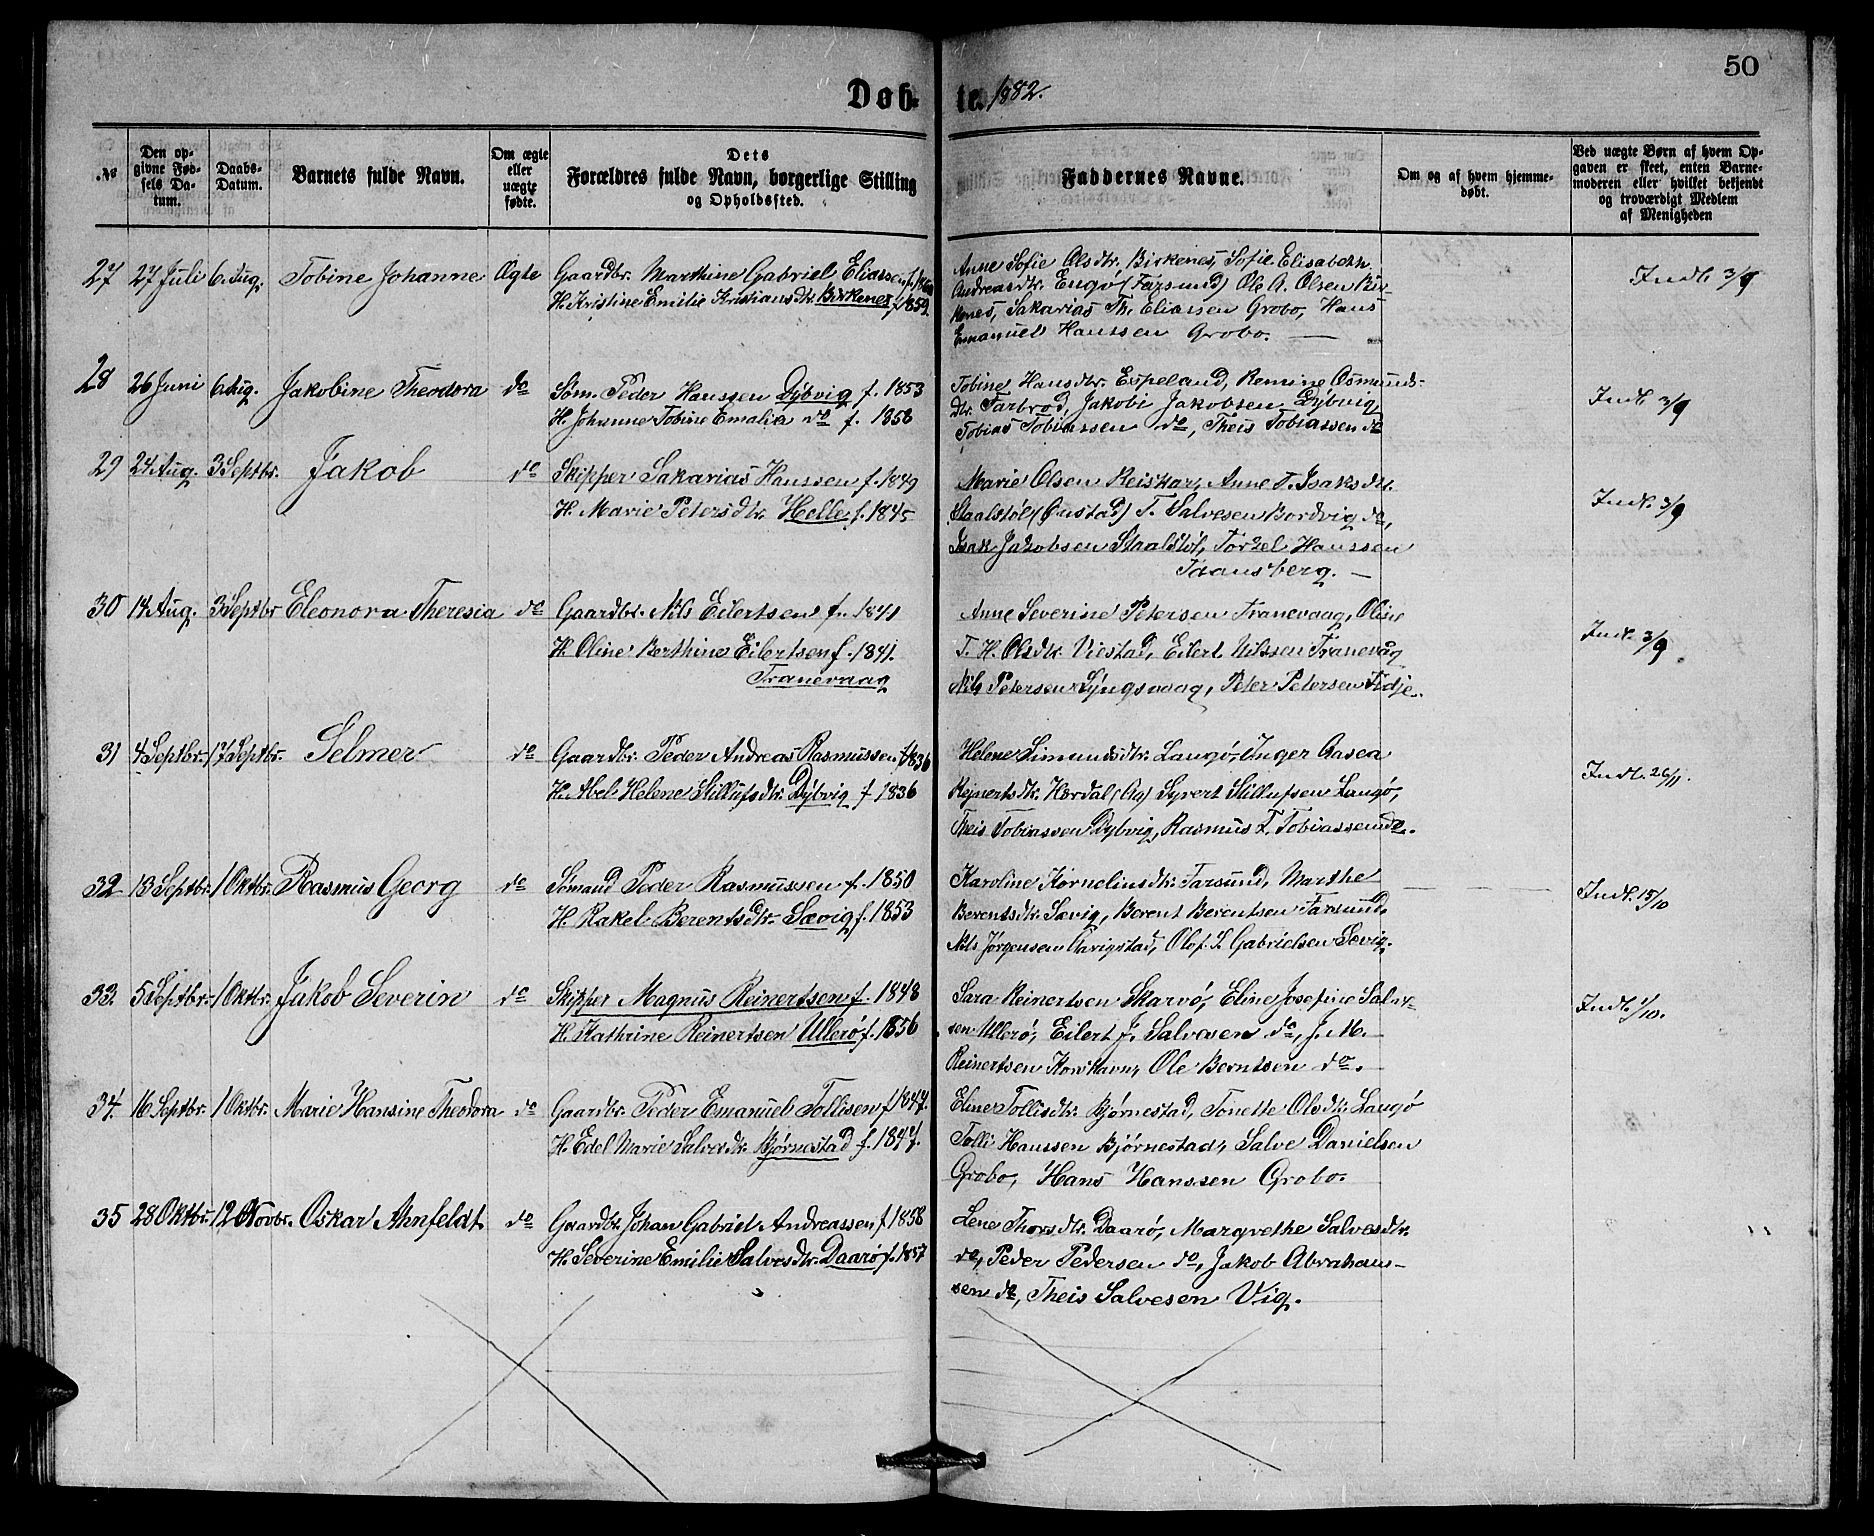 50
Døb-te. 1882.
No
Den op-
givne Fød-
sels Da-
tum.
Daabs-
Datum.
Barnets fulde Navn.
Om ægte
eller
uægte
fødte.
Dets
Forældres fulde Navn, borgerlige Stilling
og Opholdssted.
Faddernes Navne.
Om og af hvem hjemme-
døbt.
Ved uægte Børn af hvem Op-
gaven er skeet, enten Barne-
moderen eller hvilket bekjendt
og troværdigt Medlem
af Menigheden
27 27 Juli 6 Aug. Tobine Johanne Ægte
Gaardbr. Marthine Gabriel Eliassen f.
H. Kristine Emilie Kristiansdtr. Birkenes f 1859.
Anne Sofie Olsdtr. Birkenes, Sofie Elisabeth
Andreasdtr. Engø (Farsund) Ole A. Olsen Bir-
kenes, Sakarias Th. Eliassen Grobo, Hans
Emanuel Hanssen Grobo. —
Indl. 3/9
28 26 Juni 6 Aug. Jakobine Theodora do
Søm. Peder Hanssen Dÿbvig f. 1853
H. Johanne Tobine Emalia do f. 1858
Tobine Hansdtr. Espeland, Remine Osmunds-
dtr. Farbrod, Jakobi Jakobsen Dÿbvig
Tobias Tobiassen do, Theis Tobiassen do
Indl. 3/9
29 24 Aug. 3 Septbr. Jakob do
Skipper Sakarias Hanssen f. 1849
H. Marie Petersdtr. Helle f. 1845
Marie Olsen Reiskar, Anne T. Isaksdtr.
Staalstøl (Oustad) T. Salvesen Bordvig do,
Isak Jakobsen Staalstøl, Torkel Hanssen
Taansberg. —
Indl. 3/9
30 14 Aug. 3 Septbr Eleonora Theresia do
Gaardbr. Nils Eilertsen f. 1841
H. Oline Berthine Eilertsen f. 1841.
Tranevaag
Anne Severine Petersen Tranevaag, Oline
T. H. Olsdtr. Viestad, Eilert Nilssen Tranevåg
Nils Petersen Lÿngsvaag, Peter Petersen Tidje.
Indl. 3/9
31 4 Septbr. 17 Septbr. Selmer do
Gaardbr. Peder Andreas Rasmussen f 1836
H. Abel Helene Stillufsdtr. Dÿbvig f 1836
Helene Simundsdtr. Langø, Inger Aasea
Rejnertsdtr. Hærdal (Aa) Syvert Stillufsen Langø,
Theis Tobiassen Dybvig, Rasmus T. Tobiassen do.
Indl. 26/11.
32 13 Septbr. 1 Oktbr. Rasmus Georg do
Sømand Peder Rasmussen f. 1850
H. Rakel Berentsdtr. Sævig f. 1853
Karoline Kornelinsdtr. Farsund, Marthe
Berentsdtr. Sævig, Berent Berentsen Farsund,
Nils Jørgensen Aarigstad, Olof S. Gabrielsen Sævig.
Indl. 15/10
33 5 Septbr. 1 Oktbr. Jakob Severin do
Skipper Magnus Reinertsen f. 1848
H. Kathrine Reinertsen Ullerø f. 1856
Sara Reinertsen Skarvø, Eline Josefine Salve-
sen Ullerø, Eilert J. Salvesen do, J. M.
Reinertsen Korshavn, Ole Berntsen do.
Indl. 1/10.
34 16 Septbr. 1 Oktbr. Marie Hansine Theodora do
Gaardbr. Peder Emanuel Tollisen f 1847.
H. Edel Marie Salvesdtr. Bjørnestad f. 1847.
Eline Tollisdtr. Bjørnestad, Tonette Olsdtr. Langø
Tolli Hanssen Bjørnestad, Salve Danielsen
Grobo, Hans Hanssen Grobo.
35 28 Oktbr. 12 Novbr. Oskar Ahnfeldt do
Gaardbr. Johan Gabriel Andreassen f 1858
H. Severine Emilie Salvesdtr. Daarø f. 1857
Lene Thorsdtr. Daarø, Margrethe Salvesdtr.
do, Peder Pedersen do, Jakob Abraham-
sen do, Theis Salvesen Vig.